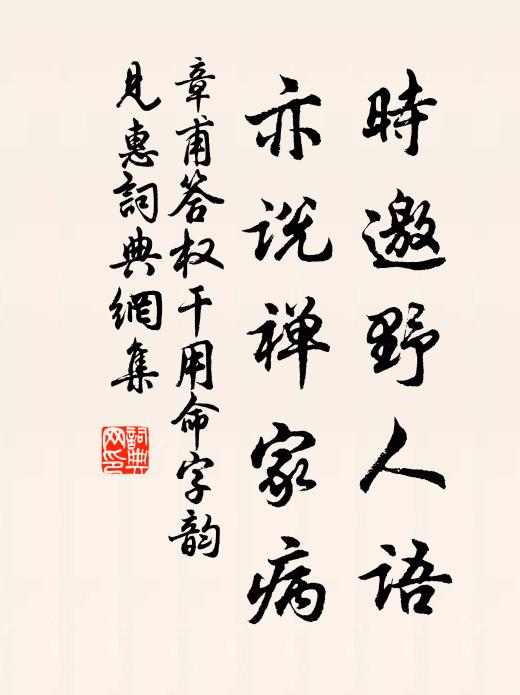 時邀野人語
亦说禅家病
章甫答权干用命字韵
見惠詞典網集
詞典網印